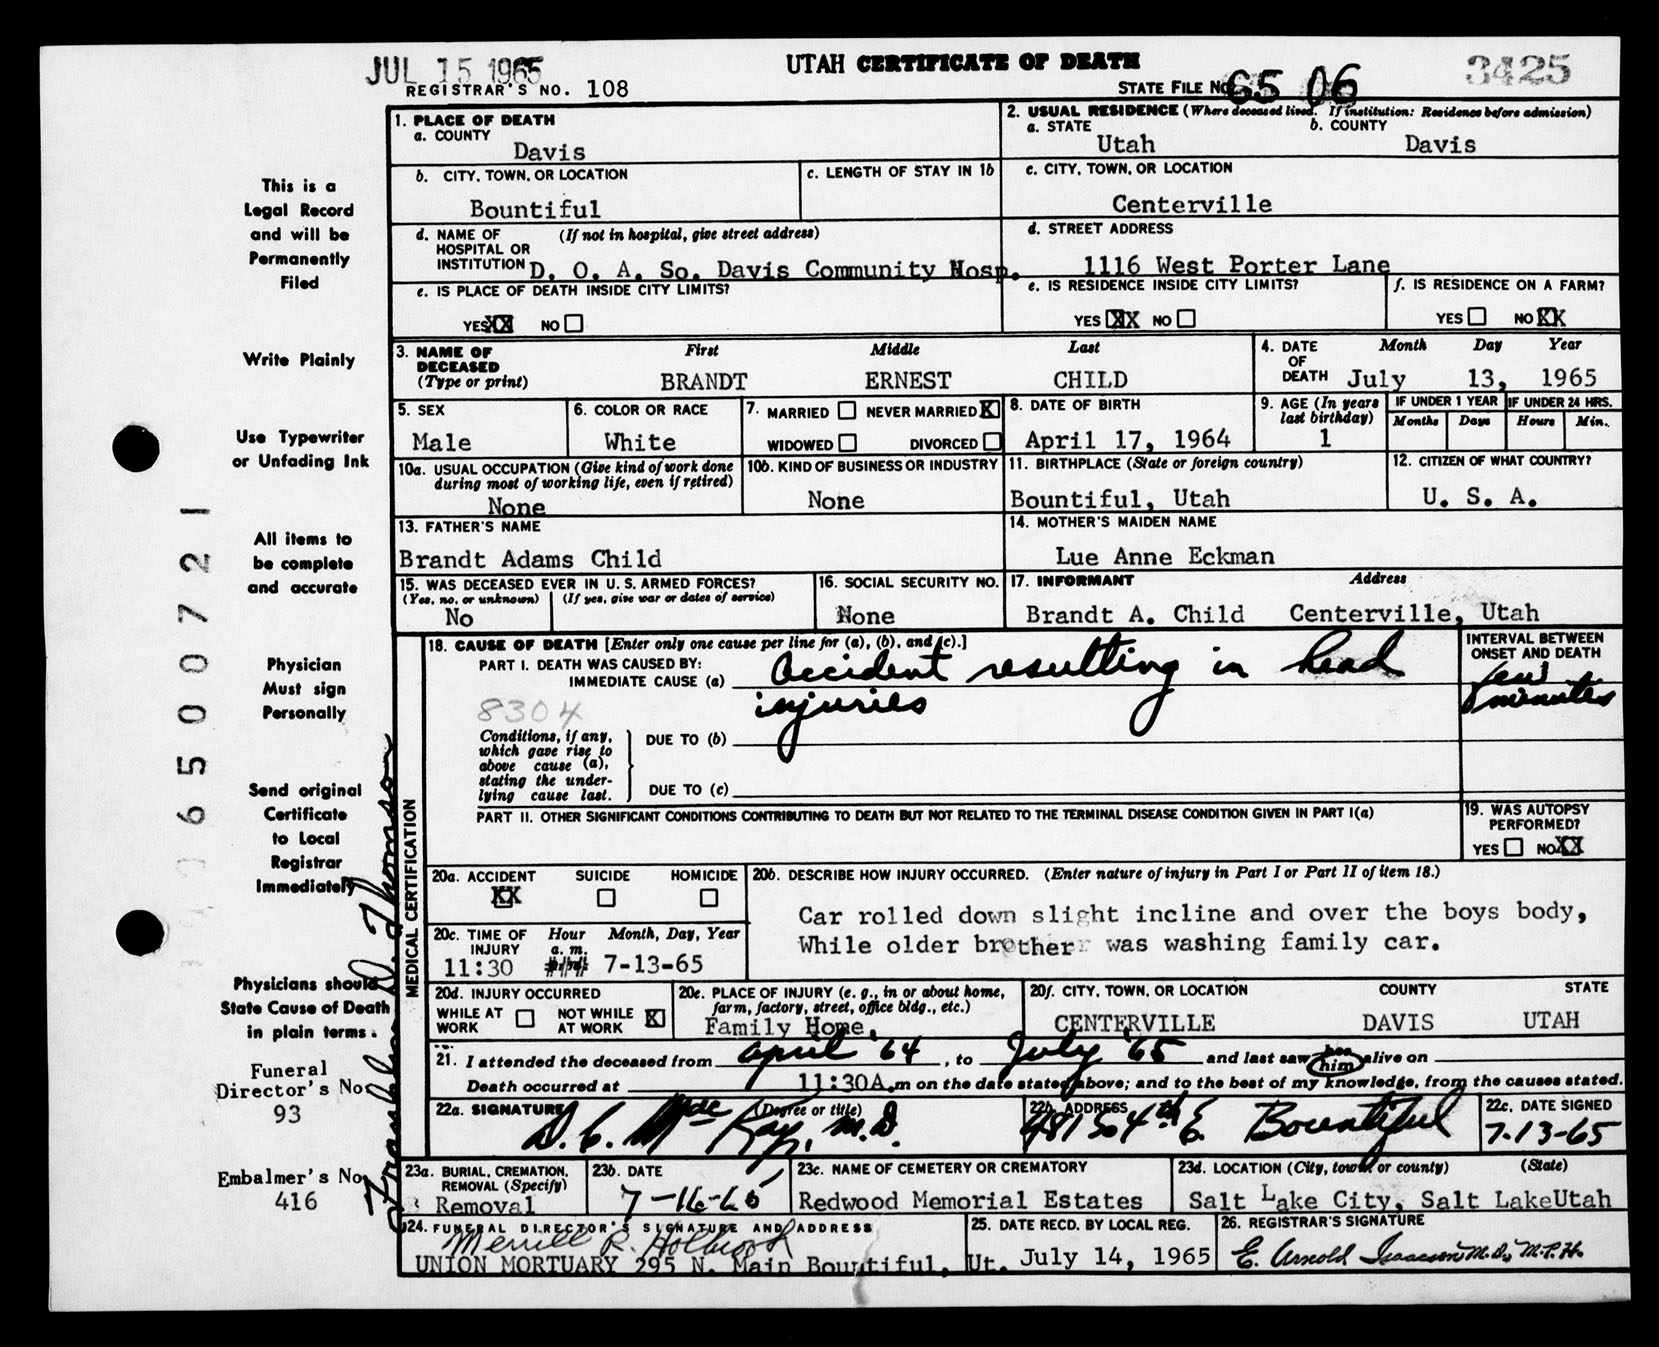 JUL 15 1965
UTAH CERTIFICATE OF DEATH
3425
REGISTRAR'S NO. 108
STATE FILE NO. 65 06
1. PLACE OF DEATH
a. COUNTY
Davis
2. USUAL RESIDENCE (Where deceased lived. If institution: Residence before admission)
a. STATE
Utah
b. COUNTY
Davis
b. CITY, TOWN, OR LOCATION
Bountiful
c. LENGTH OF STAY IN 1b
c. CITY, TOWN, OR LOCATION
Centerville
d. NAME OF HOSPITAL OR INSTITUTION (If not in hospital, give street address)
D. O. A. So. Davis Community Hosp.
d. STREET ADDRESS
1116 West Porter Lane
e. IS PLACE OF DEATH INSIDE CITY LIMITS?
YES XX NO
e. IS RESIDENCE INSIDE CITY LIMITS?
YES XX NO
f. IS RESIDENCE ON A FARM?
YES NO XX
3. NAME OF DECEASED (Type or print)
First Middle Last
BRANDT ERNEST CHILD
4. DATE OF DEATH
Month Day Year
July 13, 1965
5. SEX
Male
6. COLOR OR RACE
White
7. MARRIED NEVER MARRIED X
WIDOWED DIVORCED
8. DATE OF BIRTH
April 17, 1964
9. AGE (In years last birthday)
1
IF UNDER 1 YEAR
Months Days
IF UNDER 24 HRS.
Hours Min.
10a. USUAL OCCUPATION (Give kind of work done during most of working life, even if retired)
None
10b. KIND OF BUSINESS OR INDUSTRY
None
11. BIRTHPLACE (State or foreign country)
Bountiful, Utah
12. CITIZEN OF WHAT COUNTRY?
U. S. A.
13. FATHER'S NAME
Brandt Adams Child
14. MOTHER'S MAIDEN NAME
Lue Anne Eckman
15. WAS DECEASED EVER IN U. S. ARMED FORCES?
(Yes, no, or unknown) (If yes, give war or dates of service)
No
16. SOCIAL SECURITY NO.
None
17. INFORMANT Address
Brandt A. Child Centerville, Utah
18. CAUSE OF DEATH [Enter only one cause per line for (a), (b), and (c).]
PART I. DEATH WAS CAUSED BY:
IMMEDIATE CAUSE (a)
Accident resulting in head
injuries
INTERVAL BETWEEN ONSET AND DEATH
few
minutes
8304
Conditions, if any, which gave rise to above cause (a), stating the underlying cause last.
DUE TO (b)
DUE TO (c)
PART II. OTHER SIGNIFICANT CONDITIONS CONTRIBUTING TO DEATH BUT NOT RELATED TO THE TERMINAL DISEASE CONDITION GIVEN IN PART I(a)
19. WAS AUTOPSY PERFORMED?
YES NO XX
20a. ACCIDENT SUICIDE HOMICIDE
XX
20b. DESCRIBE HOW INJURY OCCURRED. (Enter nature of injury in Part I or Part II of item 18.)
Car rolled down slight incline and over the boys body,
While older brother was washing family car.
20c. TIME OF INJURY
Hour Month, Day, Year
a. m.
11:30 7-13-65
20d. INJURY OCCURRED
WHILE AT WORK NOT WHILE AT WORK X
20e. PLACE OF INJURY (e. g., in or about home, farm, factory, street, office bldg., etc.)
Family Home,
20f. CITY, TOWN, OR LOCATION COUNTY STATE
CENTERVILLE DAVIS UTAH
21. I attended the deceased from april '64, to July '65 and last saw her him alive on
Death occurred at 11:30A.m on the date stated above; and to the best of my knowledge, from the causes stated.
22a. SIGNATURE (Degree or title)
D. C. MacKay, M.D.
22b. ADDRESS
Bountiful
22c. DATE SIGNED
7-13-65
23a. BURIAL, CREMATION, REMOVAL (Specify)
Removal
23b. DATE
7-16-65
23c. NAME OF CEMETERY OR CREMATORY
Redwood Memorial Estates
23d. LOCATION (City, town, or county) (State)
Salt Lake City, Salt LakeUtah
24. FUNERAL DIRECTOR'S SIGNATURE AND ADDRESS
Merrill R. Holbrook
UNION MORTUARY 295 N. Main Bountiful, Ut.
25. DATE RECD. BY LOCAL REG.
July 14, 1965
26. REGISTRAR'S SIGNATURE
E. Arnold Isaacson M.D., M.P.H.
This is a
Legal Record
and will be
Permanently
Filed
Write Plainly
Use Typewriter
or Unfading Ink
All items to
be complete
and accurate
Physician
Must sign
Personally
Send original
Certificate
to Local
Registrar
Immediately
Physicians should
State Cause of Death
in plain terms.
Funeral
Director's No
93
Embalmer's No
416
MEDICAL CERTIFICATION
Franklin D. Thomson
6500721